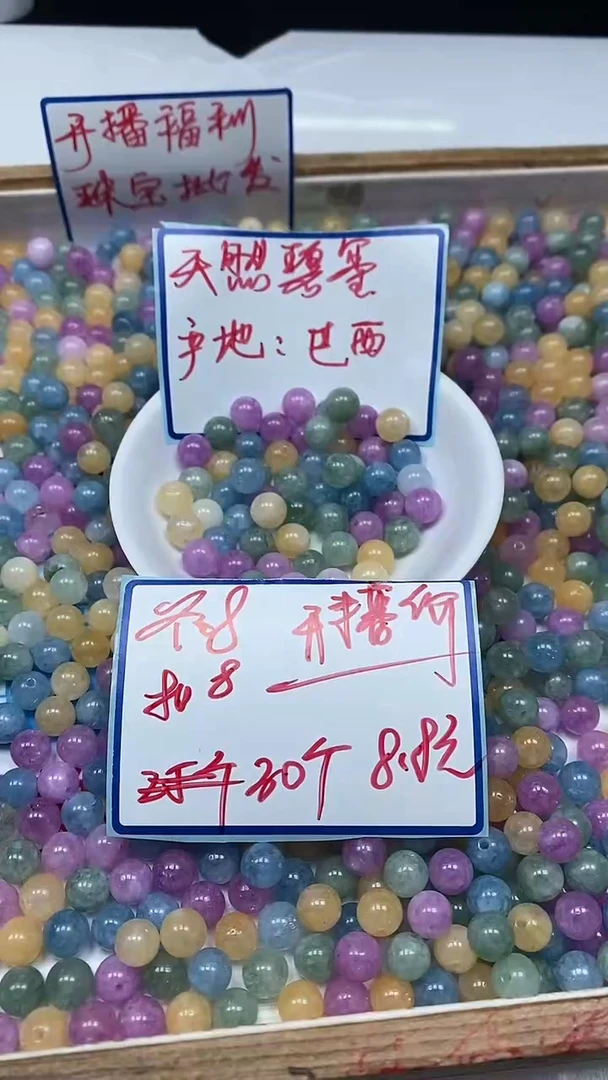 开播福利
珠宝批发
天然碧玺
产地：巴西
开播价
扣8
30个 8.8元